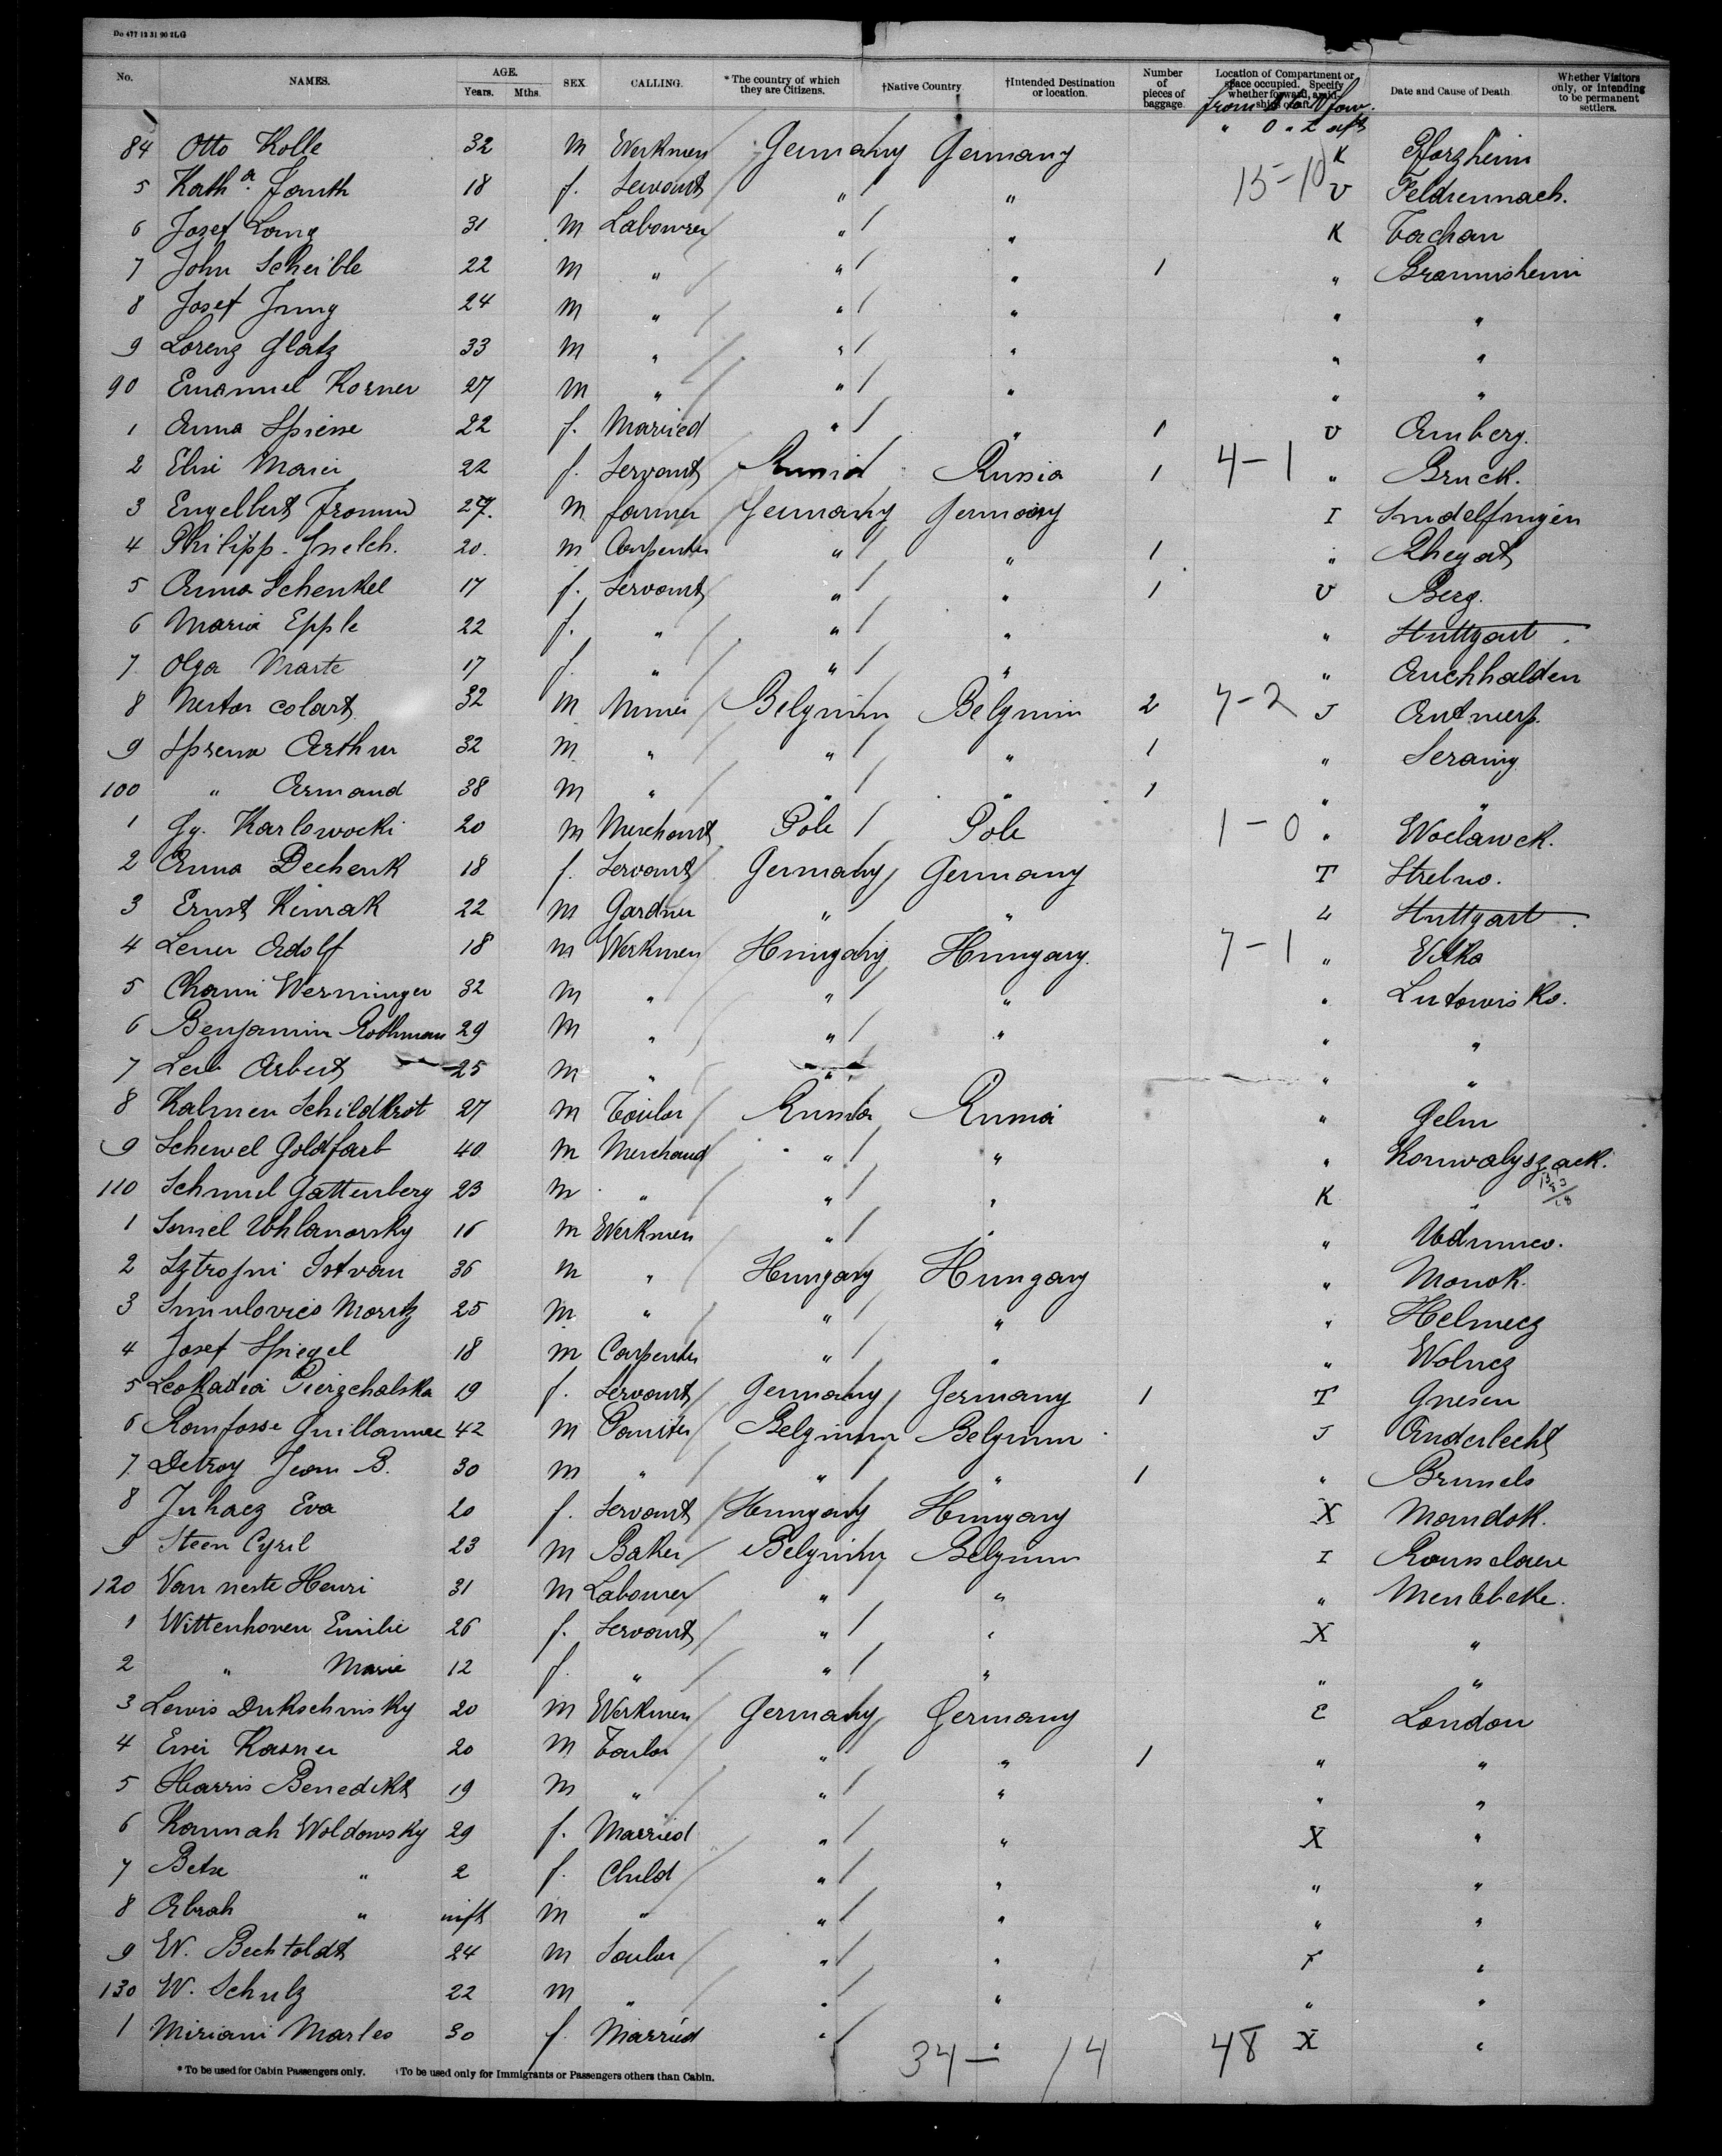 Do 477 12 31 90 2LG
No. NAMES. AGE. Years. Mths. SEX CALLING. *The country of which they are Citizens. †Native Country †Intended Destination or location. Number of pieces of baggage Location of Compartment or space occupied. Specify whether forward, amidships or aft. Date and Cause of Death Whether Visitors only, or intending to be permanent settlers.
from
" 0 " 2 aft
84 Otto Kolle 32 M Werkmen Germany Germany K Pforzheim
5 Kath a. Fauth 18 f. Servant " " 15-10 U Feldrennach.
6 Josef Lang 31 M Labourer " " K
7 John Scheible 22 M " " " 1 "
8 Josef Jung 24 M " " " " "
9 Lorenz Glatz 33 M " " " " "
90 Emanuel Korner 27 M " " " " "
1 Anna Spiesse 22 f. Married " " 1 U Amberg.
2 Elise Marei 22 f. Servant Russia Russia 1 4-1 " Bruck.
3 Engelbert Fromm 27. M farmer Germany Germany I Sindelfingen
4 Philipp Gnelch. 20. M Carpenter " " 1 " Rhegat
5 Anna Schenkel 17 f. Servant " " 1 U Berg.
6 Maria Epple 22 f. " " " " Stuttgart.
7 Olga Marte 17 f. " " " " Auchhalden
8 Nestor Colart 32 M Miner Belgium Belgium 2 7-2 J Antwerp.
9 Spreux Arthur 32 M " " " 1 " Seraing
100 " Armand 38 M " " " 1 " "
1 Gg. Karlowocki 20 M Merchant Pole Pole 1-0 " Woclawck.
2 Anna Dechenk 18 f. Servant Germany Germany T Strelno.
3 Ernst Kinrak 22 M Gardner " " 4 Stuttgart.
4 Lener Adolf 18 M Werkmen Hungary Hungary. 7-1 " Vitka
5 Chami Werminger 32 M " " " " Lutowisko.
6 Benjamin Rothman 29 M " " " " "
7 Leib Arbert 25 M " " " "
8 Kalmen Schildkrot 27 M Tailor Russia Russia " Gelm
9 Schewel Goldfarb 40 M Merchand " " " Konwalyszack.
110 Schmul Gattenberg 23 M " " " K "
1 Samel Uhlanorsky 16 M Werkmen " " "
2 Sztrojni Istvan 36 M " Hungary Hungary " Monok.
3 Simulovics Moritz 25 M " " " " Helmecz
4 Josef Spiegel 18 M Carpenter " " " Wolucz
5 Leokadia Pierzchalska 19 f. Servant Germany Germany 1 T Gnesen
6 Romfosse Guillaumee 42 M Painter Belgium Belgium J Anderlecht
7 Detroy Jean B. 30 M " " " 1 " Brussels
8 Juhacz Eva 20 f. Servant Hungary Hungary X Mandok.
9 Steen Cyril 23 M Baker Belgium Belgium I Rousselaere
120 Van neste Henri 31 M Labourer " " " Meulebeke.
1 Wittenhoven Emilie 26 f. Servant " " X "
2 " Marie 12 f. " " " " "
3 Lewis Dukschinsky 20 M Werkmen Germany Germany E London
4 Eisei Kasner 20 M Tailor " " 1 " "
5 Harris Benedikt 19 M " " " " "
6 Hannah Woldowsky 29 f. Married " " X "
7 Betsi " 2 f. Child " " " "
8 Abrah " inft M " " " " "
9 W. Bechtoldt 24 M Sailor " " F "
130 W. Schulz 22 M " " " " "
1 Miriam Marles 30 f. Married " " X "
34- 14 48
*To be used for Cabin Passengers only. †To be used only for Immigrants or Passengers others than Cabin.